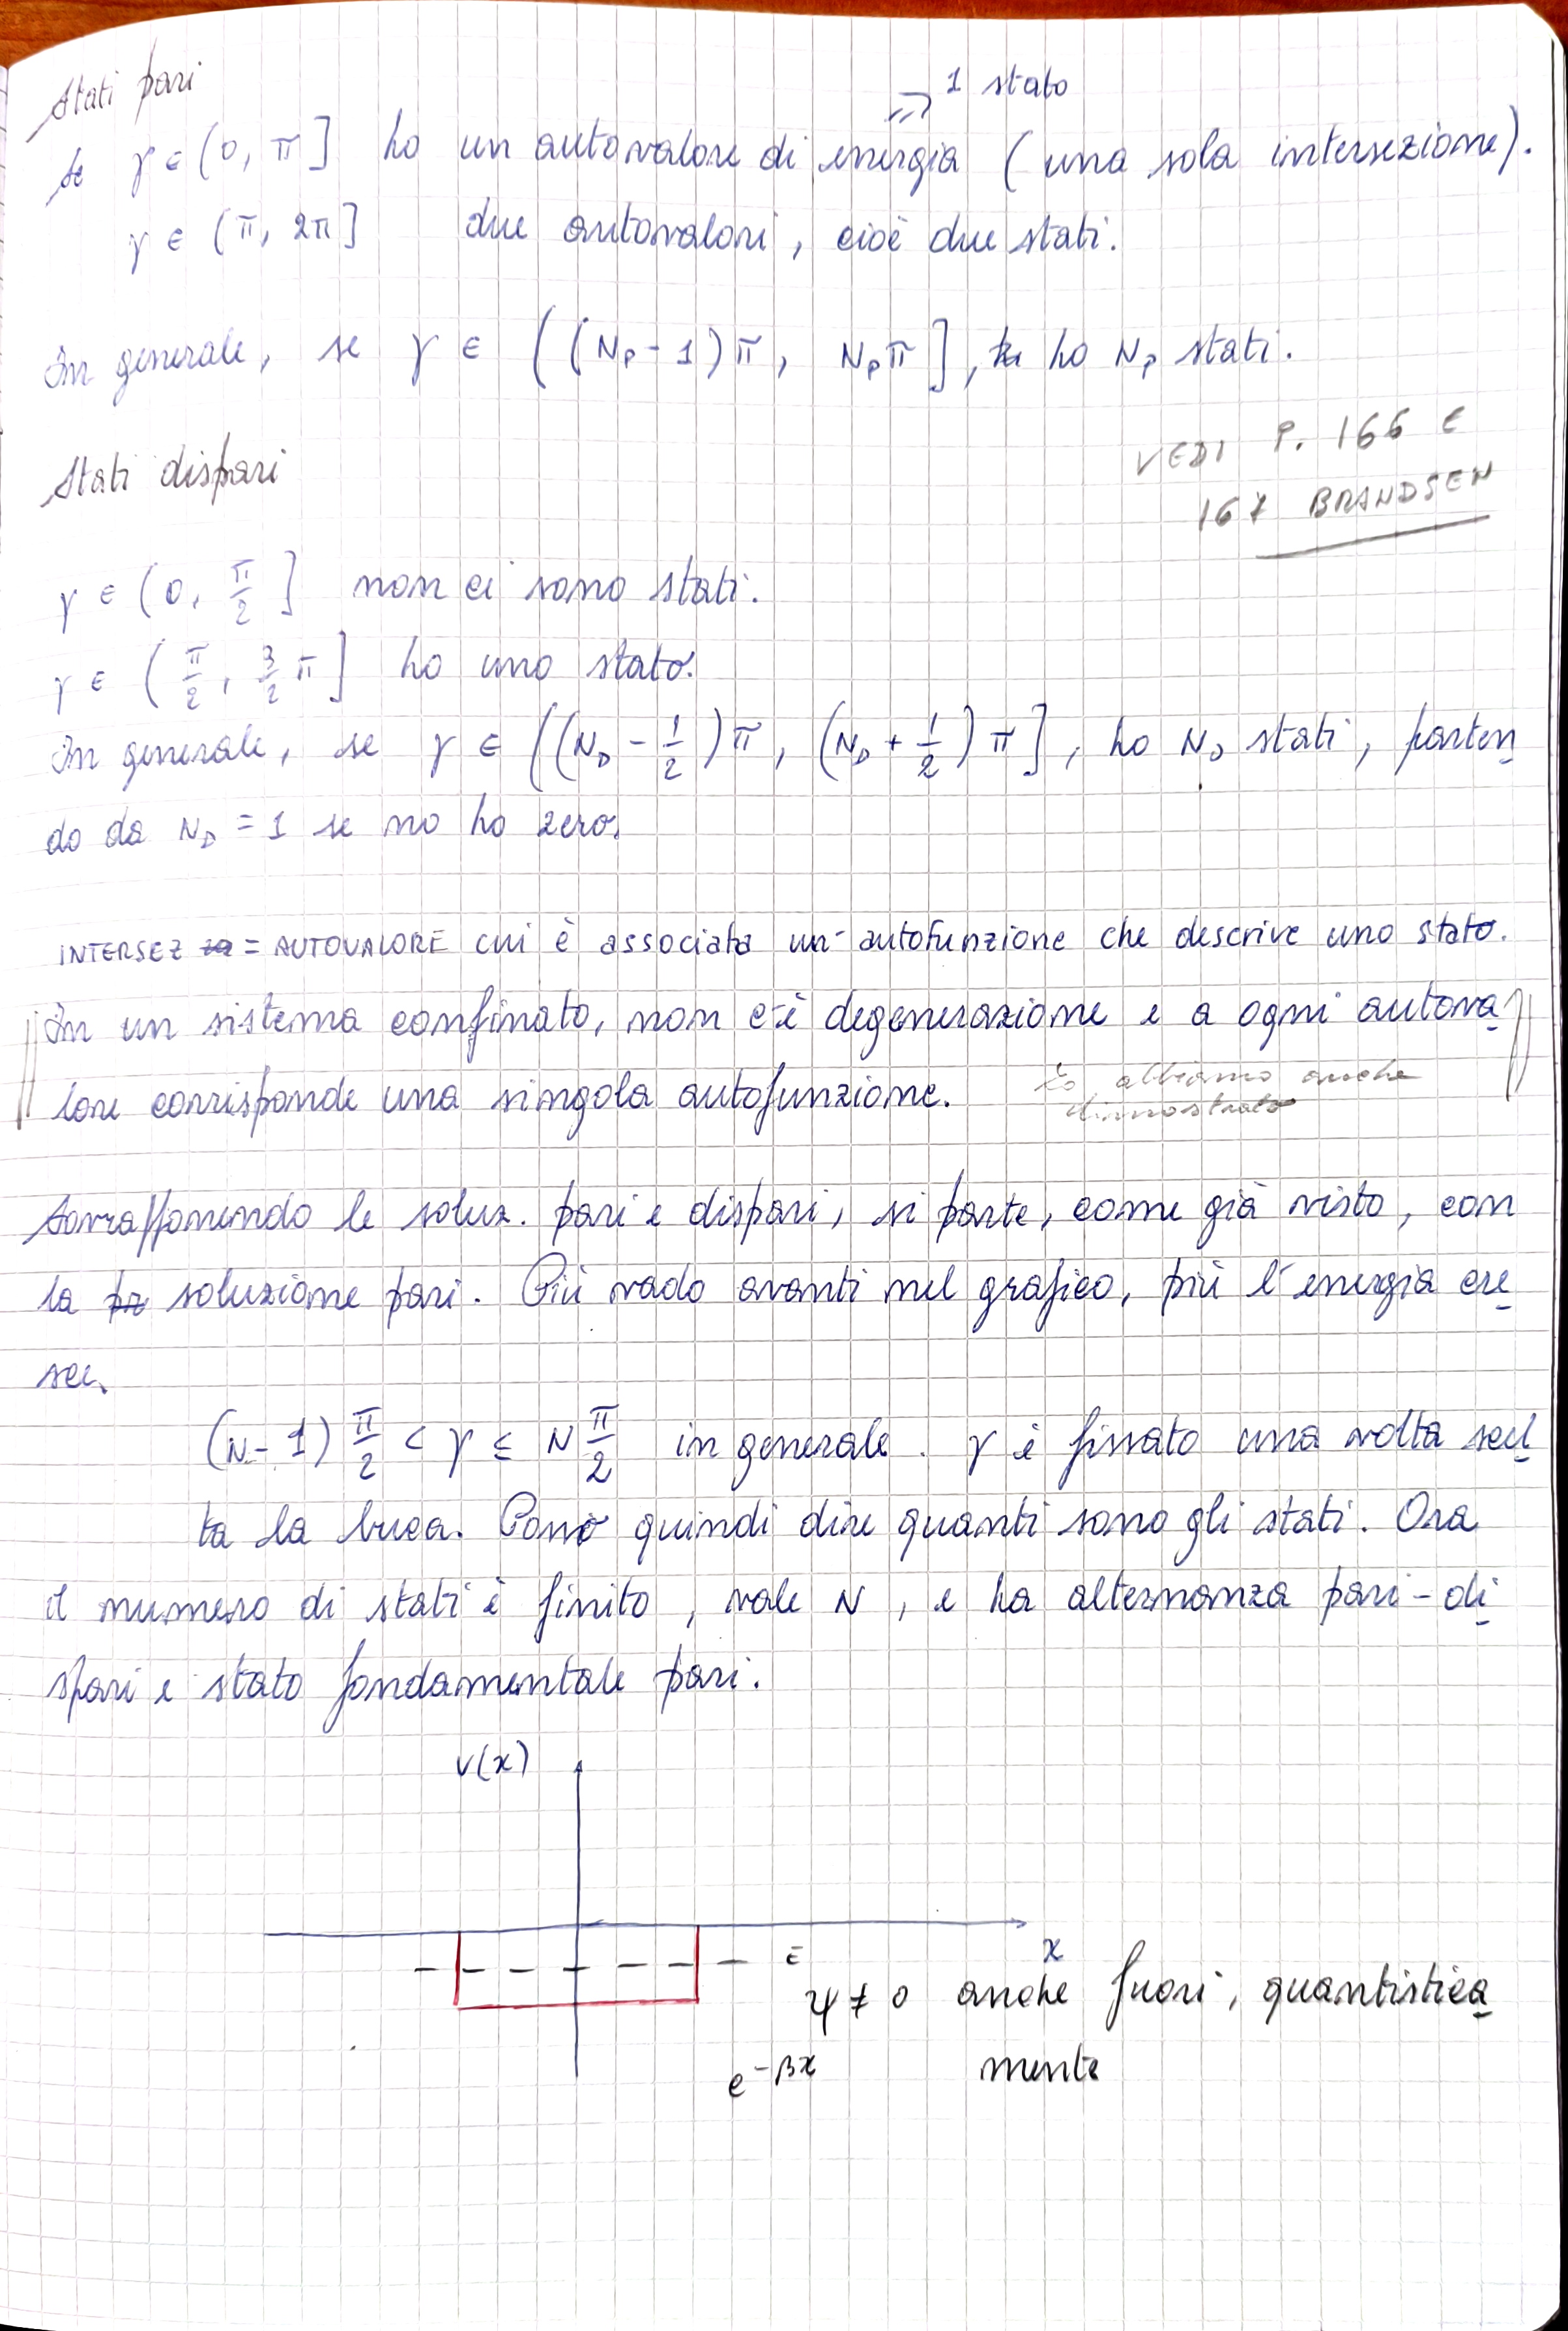 Stati pari
⇒ 1 stato
Se γ ∈ (0, π] ho un autovalore di energia (una sola intersezione).
γ ∈ (π, 2π] due autovalori, cioè due stati.
In generale, se γ ∈ ((N_P - 1)π, N_Pπ], ho N_P stati.
VEDI P. 166 E
167 BRANDSEN
Stati dispari
γ ∈ (0, π/2] non ci sono stati.
γ ∈ (π/2, 3/2 π] ho uno stato.
In generale, se γ ∈ ((N_D - 1/2)π, (N_D + 1/2)π], ho N_D stati, parten
do da N_D = 1 se no ho zero.
INTERSEZ = AUTOVALORE cui è associata un'autofunzione che descrive uno stato.
In un sistema confinato, non c'è degenerazione e a ogni autova
lore corrisponde una singola autofunzione.
Lo abbiamo anche
dimostrato
Sovrapponendo le soluz. pari e dispari, si parte, come già visto, con
la soluzione pari. Più vado avanti nel grafico, più l'energia cre
sce.
(N - 1) π/2 < γ ≤ N π/2 in generale. γ è fissato una volta scel
ta la buca. Posso quindi dire quanti sono gli stati. Ora
il numero di stati è finito, vale N, e ha alternanza pari-di
spari e stato fondamentale pari.
V(x)
E
x
ψ ≠ 0 anche fuori, quantistica
mente
e^-βx